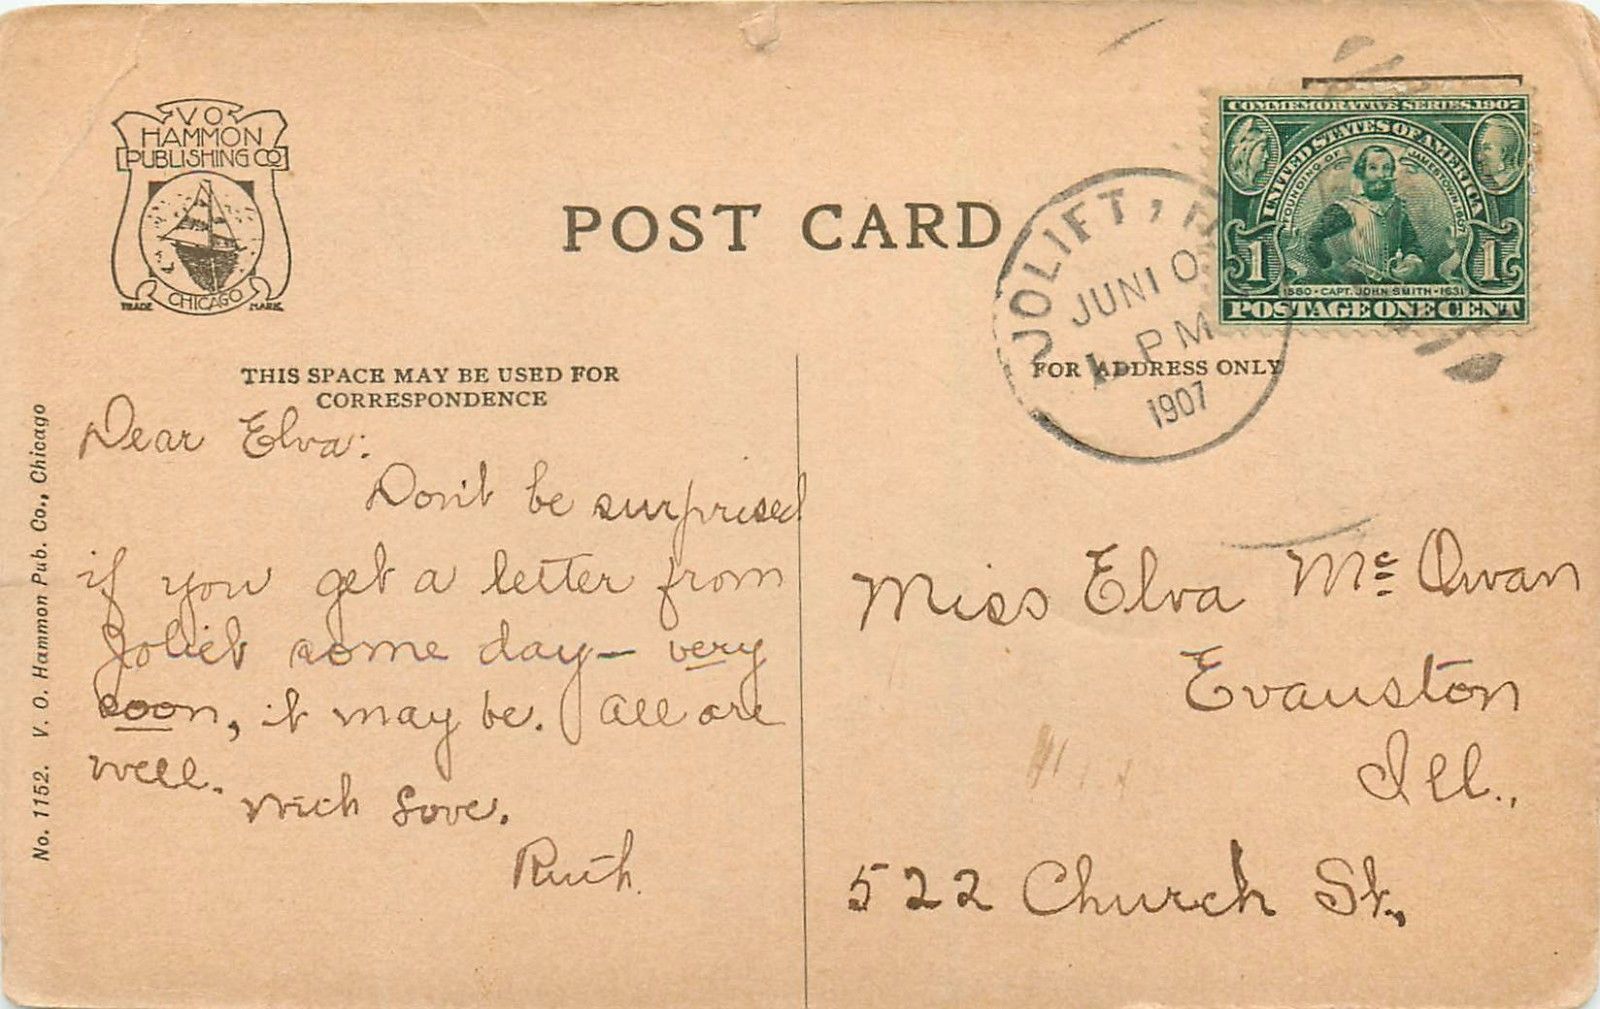 V O
HAMMON
PUBLISHING CO
CHICAGO
TRADE MARK
POST CARD
COMMEMORATIVE SERIES 1907
UNITED STATES OF AMERICA
FOUNDING OF JAMESTOWN 1607
1 1
1580 · CAPT. JOHN SMITH · 1631
POSTAGE ONE CENT
JOLIET,
JUN 10
1 PM
1907
THIS SPACE MAY BE USED FOR
CORRESPONDENCE
FOR ADDRESS ONLY
Dear Elva:
Don't be surprised
if you get a letter from
Joliet some day – very
soon, it may be. All are
well.
With Love.
Ruth.
Miss Elva Mc Qwan
Evanston
Ill.,
522 Church St.,
No. 1152. V. O. Hammon Pub. Co., Chicago